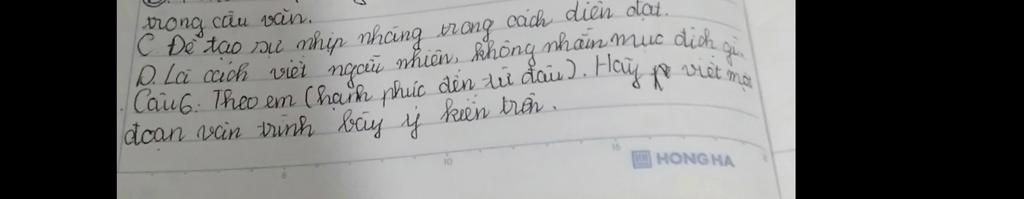 trong câu văn.
C. Để tạo sự nhịp nhàng trong cách diễn đạt.
D. Là cách viết ngẫu nhiên, không nhằm mục đích gì.
Câu 6: Theo em (hạnh phúc đến từ đâu). Hãy viết một
đoạn văn trình bày ý kiến trên.
5 10 15
HONG HA